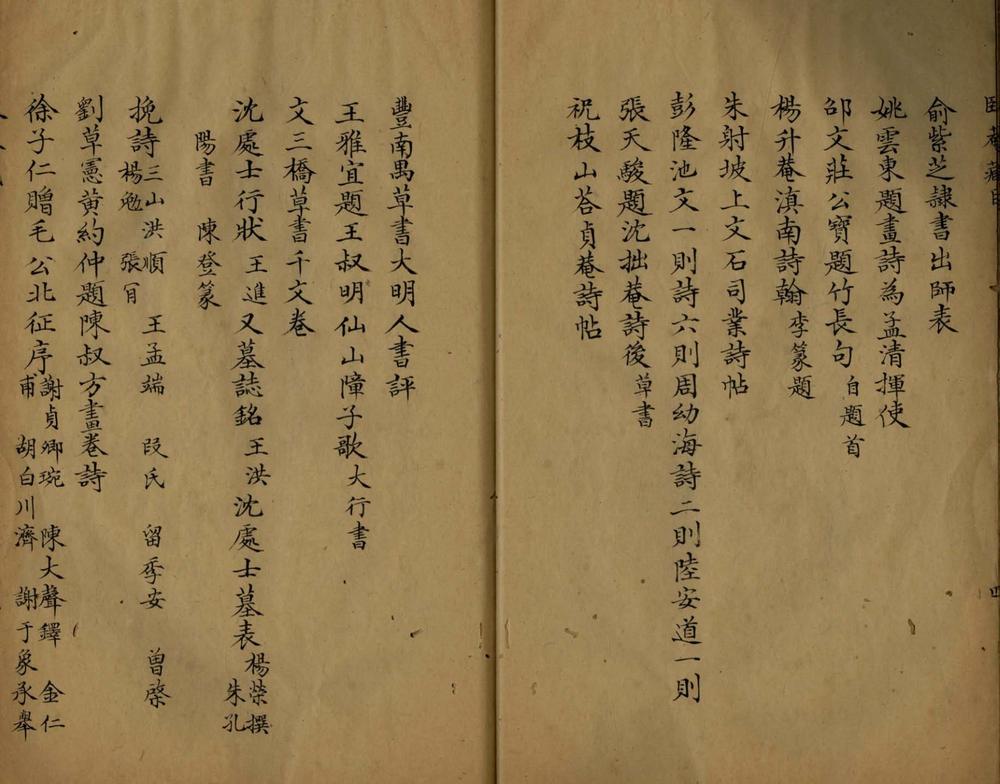 俞紫芝隷書出師表
姚雲東題畫詩為孟清揮使
邵文莊公寶題竹長句自題首
楊升菴滇南詩翰李篆題
朱射坡上文石司業詩帖
彭隆池文一則詩六則周幼海詩二則陸安道一則
張天駿題沈拙菴詩後草書
祝枝山荅貞菴詩帖
豐南禺草書大明人書評
王雅宜題王叔明仙山障子歌大行書
文三橋草書千文卷
沈處士行狀王進又墓誌銘王洪沈處士墓表楊榮撰朱孔
陽書 陳登篆
挽詩三山洪順 楊勉 張肎 王孟端 段氏 留季安 曾棨
劉草憲黄約仲題陳叔方畫卷詩
徐子仁贈毛公北征序謝貞卿琬 陳大聲鐸 金仁
甫 胡白川濟 謝于象承舉